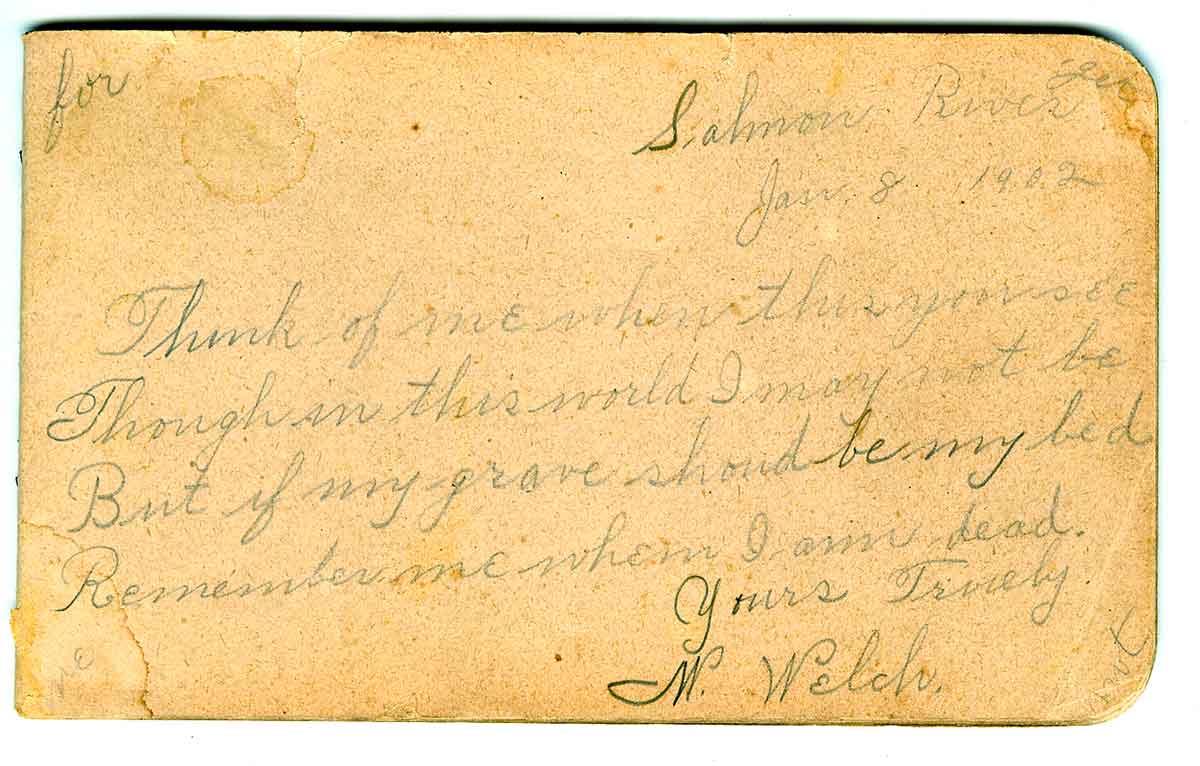 for
get
Salmon River
Jan. 8 1902
Think of me when this you see
Though in this world I may not be
But if my grave shoud be my bed
Remember me when I am dead.
Yours Truely
M. Welch.
me
not